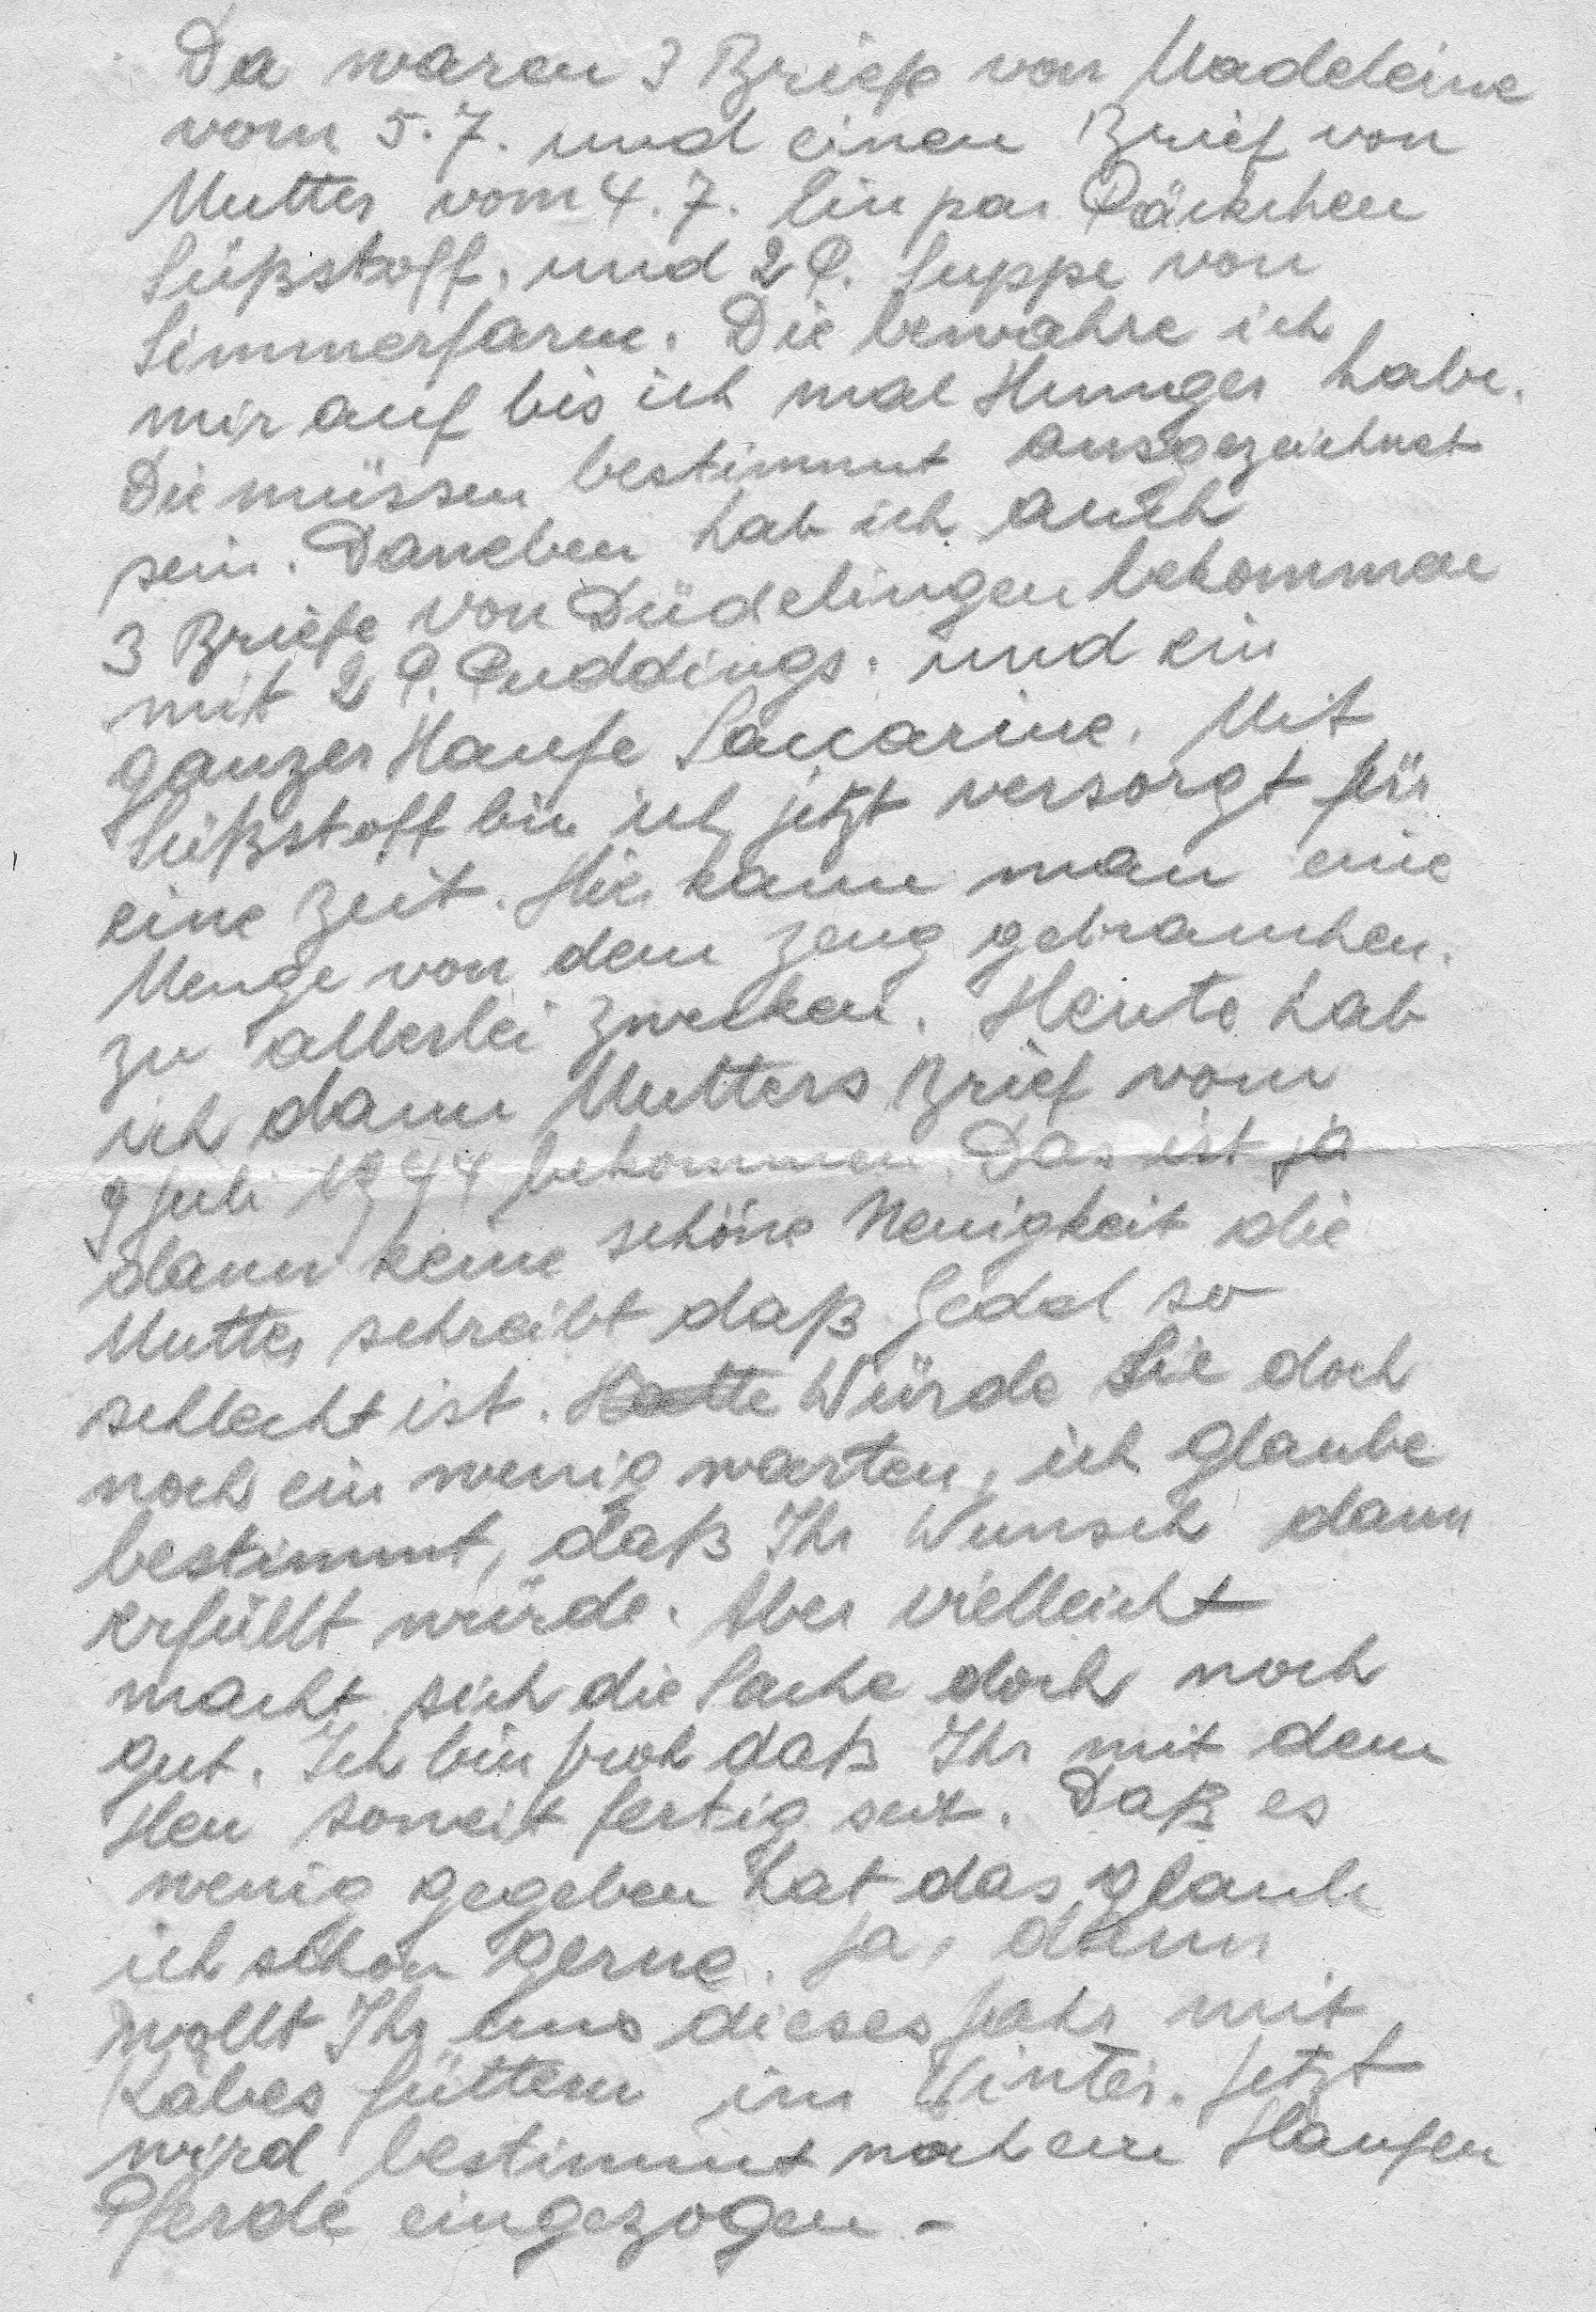 Da waren 3 Briefe von Madeleine
vom 5.7. und einen Brief von
Mutter vom 4.7. Ein par Päckchen
Süßstoff, und 2 P. Suppe von
Simmerfarm. Die bewahre ich
mir auf bis ich mal Hunger habe.
Die müssen bestimmt ausgezeichnet
sein. Daneben hab ich auch
3 Briefe von Düdelingen bekommen
mit 2 P. Puddings. und ein
ganzer Haufe Saccarine. Mit
Süßstoff bin ich jetzt versorgt für
eine Zeit. Hier kann man eine
Menge von dem Zeug gebrauchen.
zu allerlei Zwecken. Heute hab
ich dann Mutters Brief vom
9 Juli 1944 bekommen. Das ist ja
dann keine schöne Neuigkeit die
Mutter schreibt daß so
schlecht ist. Hatte Würde Sie doch
noch ein wenig warten, ich glaube
bestimmt, daß Ihr Wunsch dann
erfüllt würde. Aber vielleicht
macht sich die Sache doch noch
gut. Ich bin froh daß Ihr mit dem
Heu soweit fertig seit. Daß es
wenig gegeben hat das glaub
ich schon gerne. Ja, dann
wollt Ihr uns dieses Jahr mit
Kabes füttern im Winter. Jetzt
wird bestimmt noch ein Haufen
Pferde eingezogen -